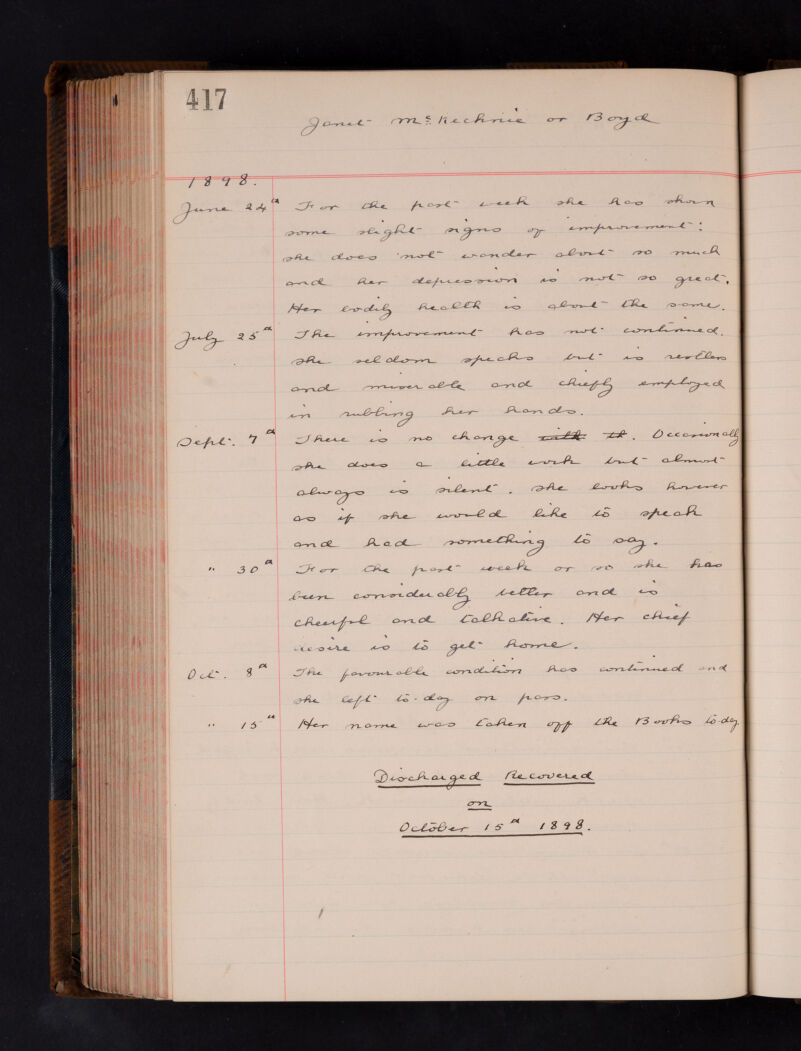 417
Janet McKechnie or Boyd
1898.
June 24th For the past week she has shown
some slight signs of improvement:
she does not wander about so much
and her depression is not so great.
Her bodily health is about the same.
July 25th The improvement has not continued.
She seldom speaks but is restless
and miserable and chiefly employed
in rubbing her hands.
Sept. 7th There is no change with th. Occasionally
she does a little work but almost
always is silent. She looks however
as if she would like to speak
and had something to say.
" 30th For the past week or so she has
been considerably better and is
cheerful and talkative. Her chief
desire is to get home.
Oct. 8th The favourable condition has continued and
she left to-day on pass.
" 15th Her name was taken off the Books to day.
Discharged Recovered
on
October 15th 1898.